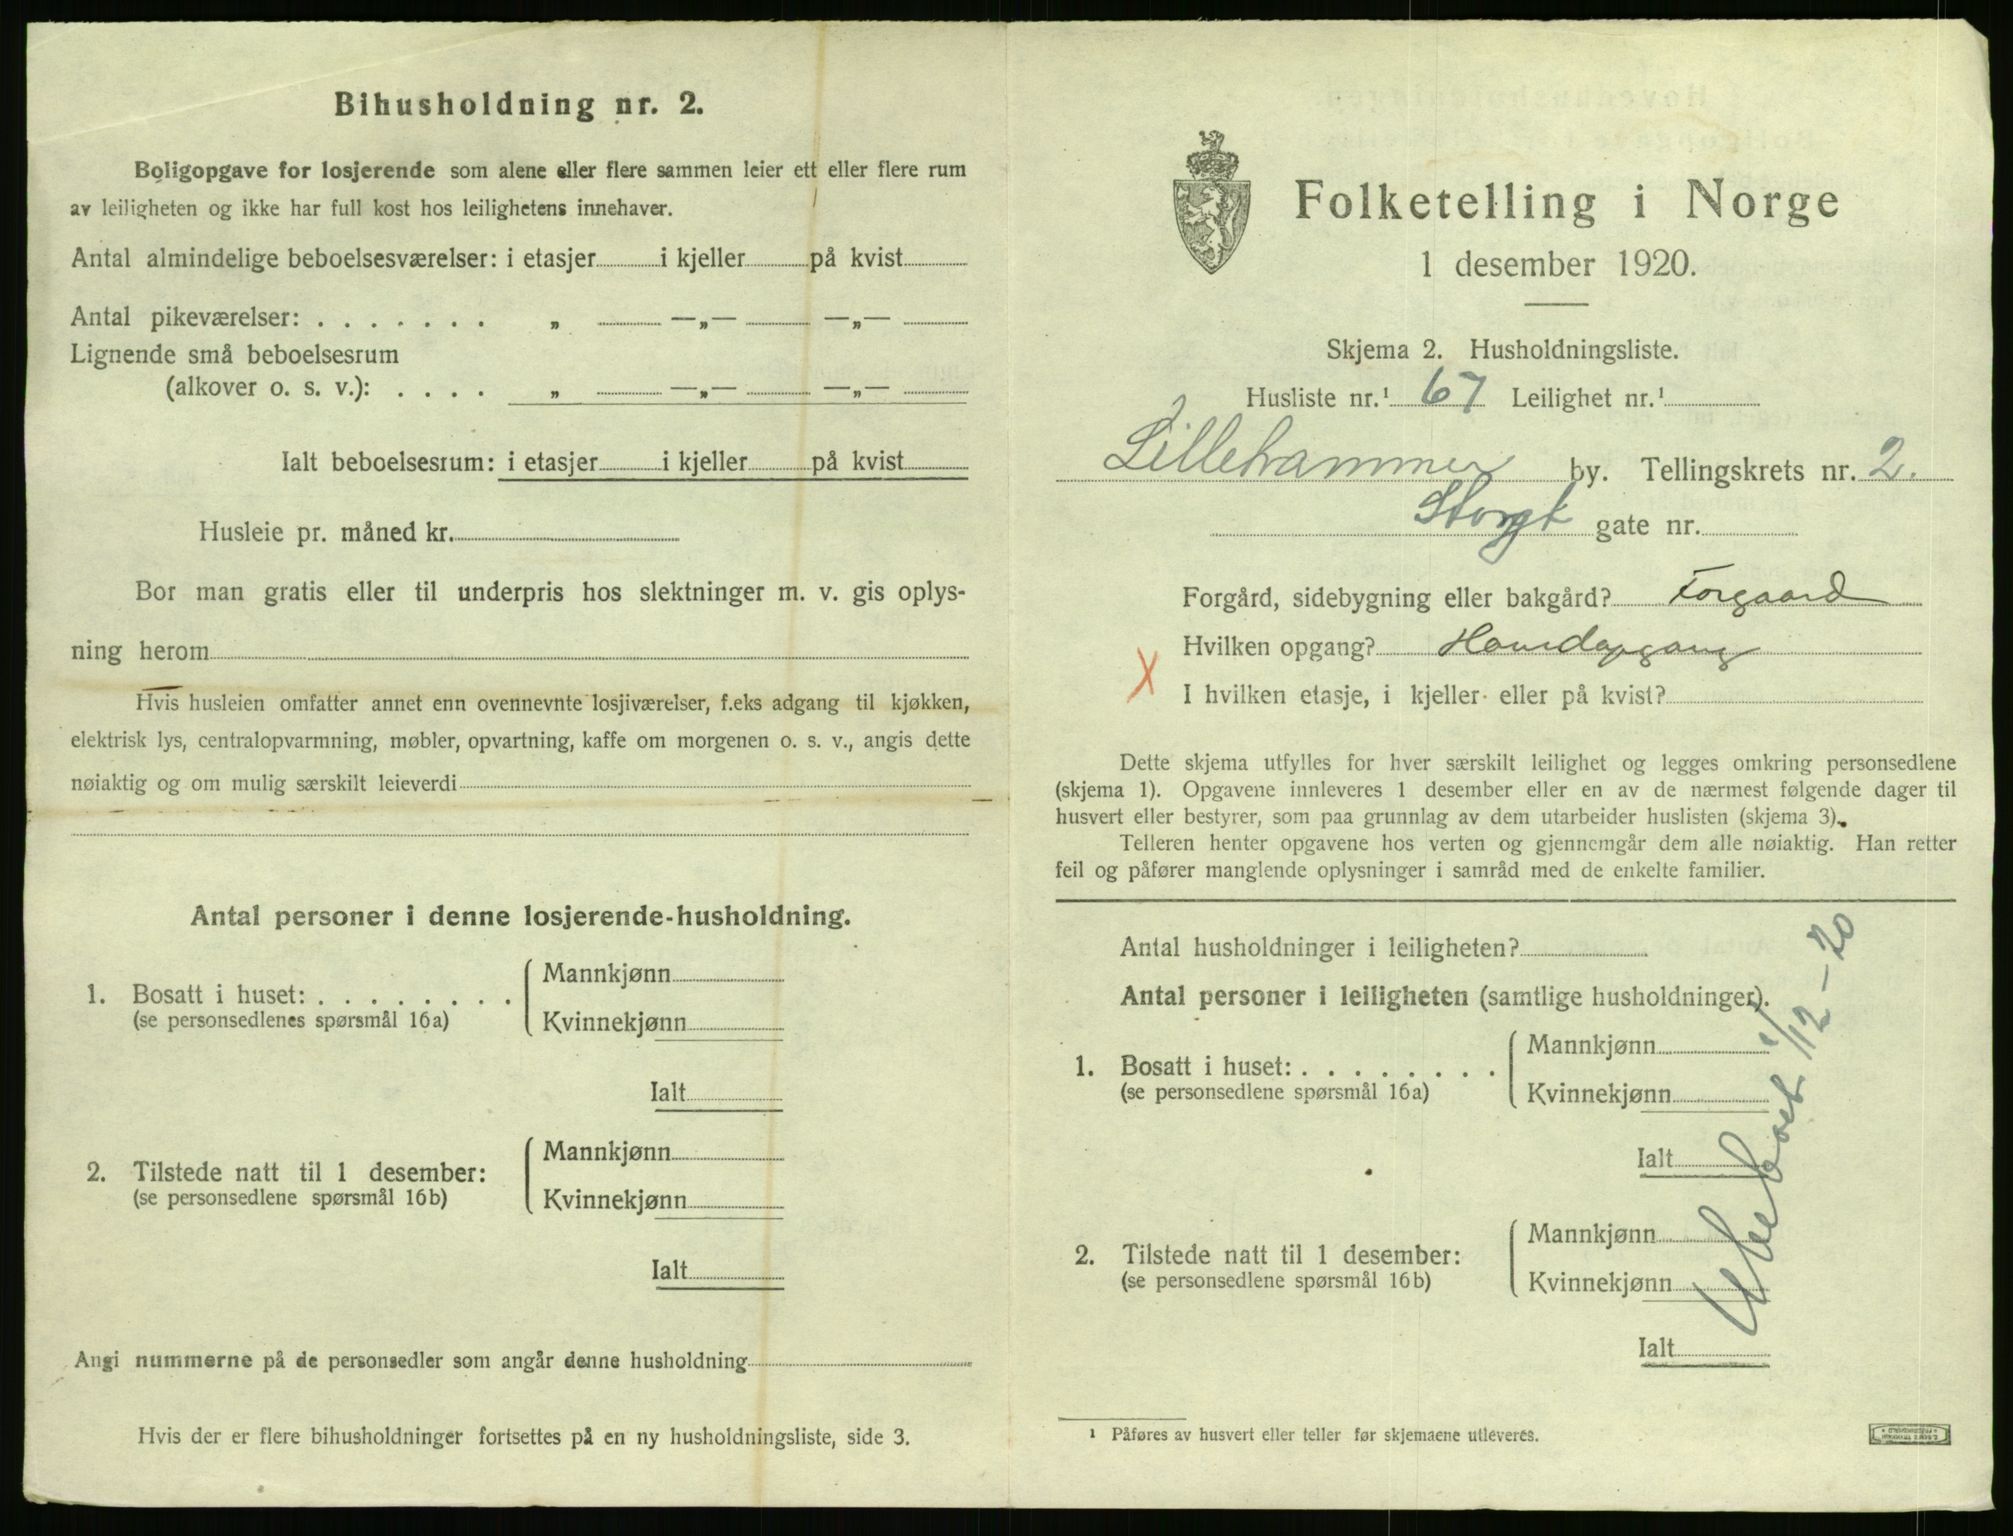 Bihusholdning nr. 2.
Boligopgave for losjerende som alene eller flere sammen leier ett eller flere rum
av leiligheten og ikke har full kost hos leilighetens innehaver.
Antal almindelige beboelsesværelser: i etasjer i kjeller på kvist
Antal pikeværelser: . . . . . . . „ —„— —„—
Lignende små beboelsesrum
(alkover o. s. v.): . . . . „ —„— —„—
Ialt beboelsesrum: i etasjer i kjeller på kvist
Husleie pr. måned kr.
Bor man gratis eller til underpris hos slektninger m. v. gis oplys-
ning herom
Hvis husleien omfatter annet enn ovennevnte losjiværelser, f.eks adgang til kjøkken,
elektrisk lys, centralopvarmning, møbler, opvartning, kaffe om morgenen o. s. v., angis dette
nøiaktig og om mulig særskilt leieverdi
Antal personer i denne losjerende-husholdning.
1. Bosatt i huset: . . . . . . . .
(se personsedlenes spørsmål 16a)
Mannkjønn
Kvinnekjønn
Ialt
2. Tilstede natt til 1 desember:
(se personsedlene spørsmål 16b)
Mannkjønn
Kvinnekjønn
Ialt
Angi nummerne på de personsedler som angår denne husholdning
Hvis der er flere bihusholdninger fortsettes på en ny husholdningsliste, side 3.
Folketelling i Norge
1 desember 1920.
Skjema 2. Husholdningsliste.
Husliste nr.¹ 67 Leilighet nr.¹
Lillehammer by. Tellingskrets nr. 2.
Storgt gate nr.
Forgård, sidebygning eller bakgård? Forgaard
Hvilken opgang? Hovedopgang
X I hvilken etasje, i kjeller eller på kvist?
Dette skjema utfylles for hver særskilt leilighet og legges omkring personsedlene
(skjema 1). Opgavene innleveres 1 desember eller en av de nærmest følgende dager til
husvert eller bestyrer, som paa grunnlag av dem utarbeider huslisten (skjema 3).
Telleren henter opgavene hos verten og gjennemgår dem alle nøiaktig. Han retter
feil og påfører manglende oplysninger i samråd med de enkelte familier.
Antal husholdninger i leiligheten?
Antal personer i leiligheten (samtlige husholdninger).
1. Bosatt i huset: . . . . . . . .
(se personsedlene spørsmål 16a)
Mannkjønn
Kvinnekjønn
Ialt
2. Tilstede natt til 1 desember:
(se personsedlene spørsmål 16b)
Mannkjønn
Kvinnekjønn
Ialt
Ubeboet 1/12-20
¹ Påføres av husvert eller teller før skjemaene utleveres.